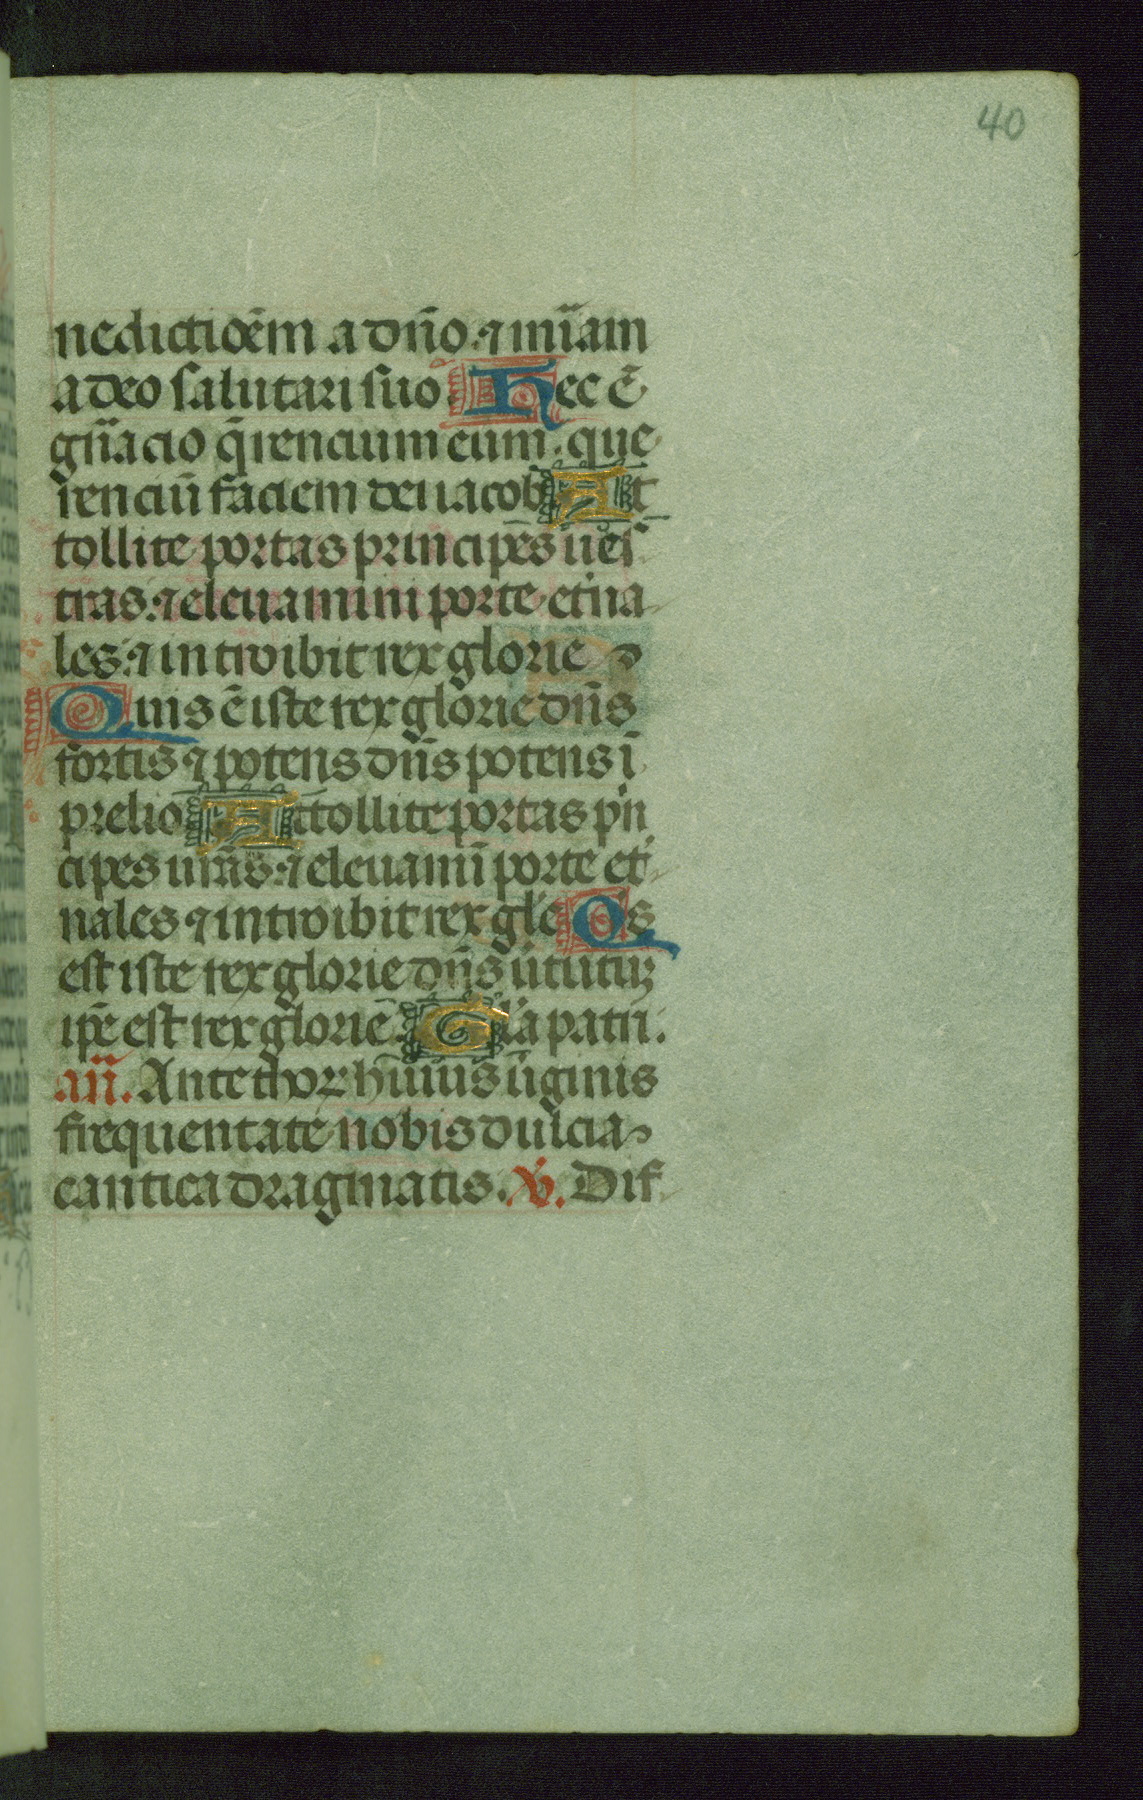 40
nedictioēm a dn̄o. ⁊ mīam
a deo salutari suo Hec ē
gn̄acio q̄rencium eum. que
renciū faciem dei iacob At
tollite portas principēs ues
tras: ⁊ eleuamini porte et'na
les: ⁊ introibit rex glorie
Quis ē iste rex glorie dn̄s
fortis ⁊ potens dn̄s potens ī
prelio Attollite portas p'n
cipes ur̄as: ⁊ eleuamī porte et'
nales ⁊ introibit rex gl'e Q's
est iste rex glorie dn̄s ūtutuꝫ
ip̄e est rex glorie. Gl'a patri.
an̄. Ante thorꝝ hui'us ūginis
frequentate nobis dulcia
cantica dragmatis. V̄. Dif